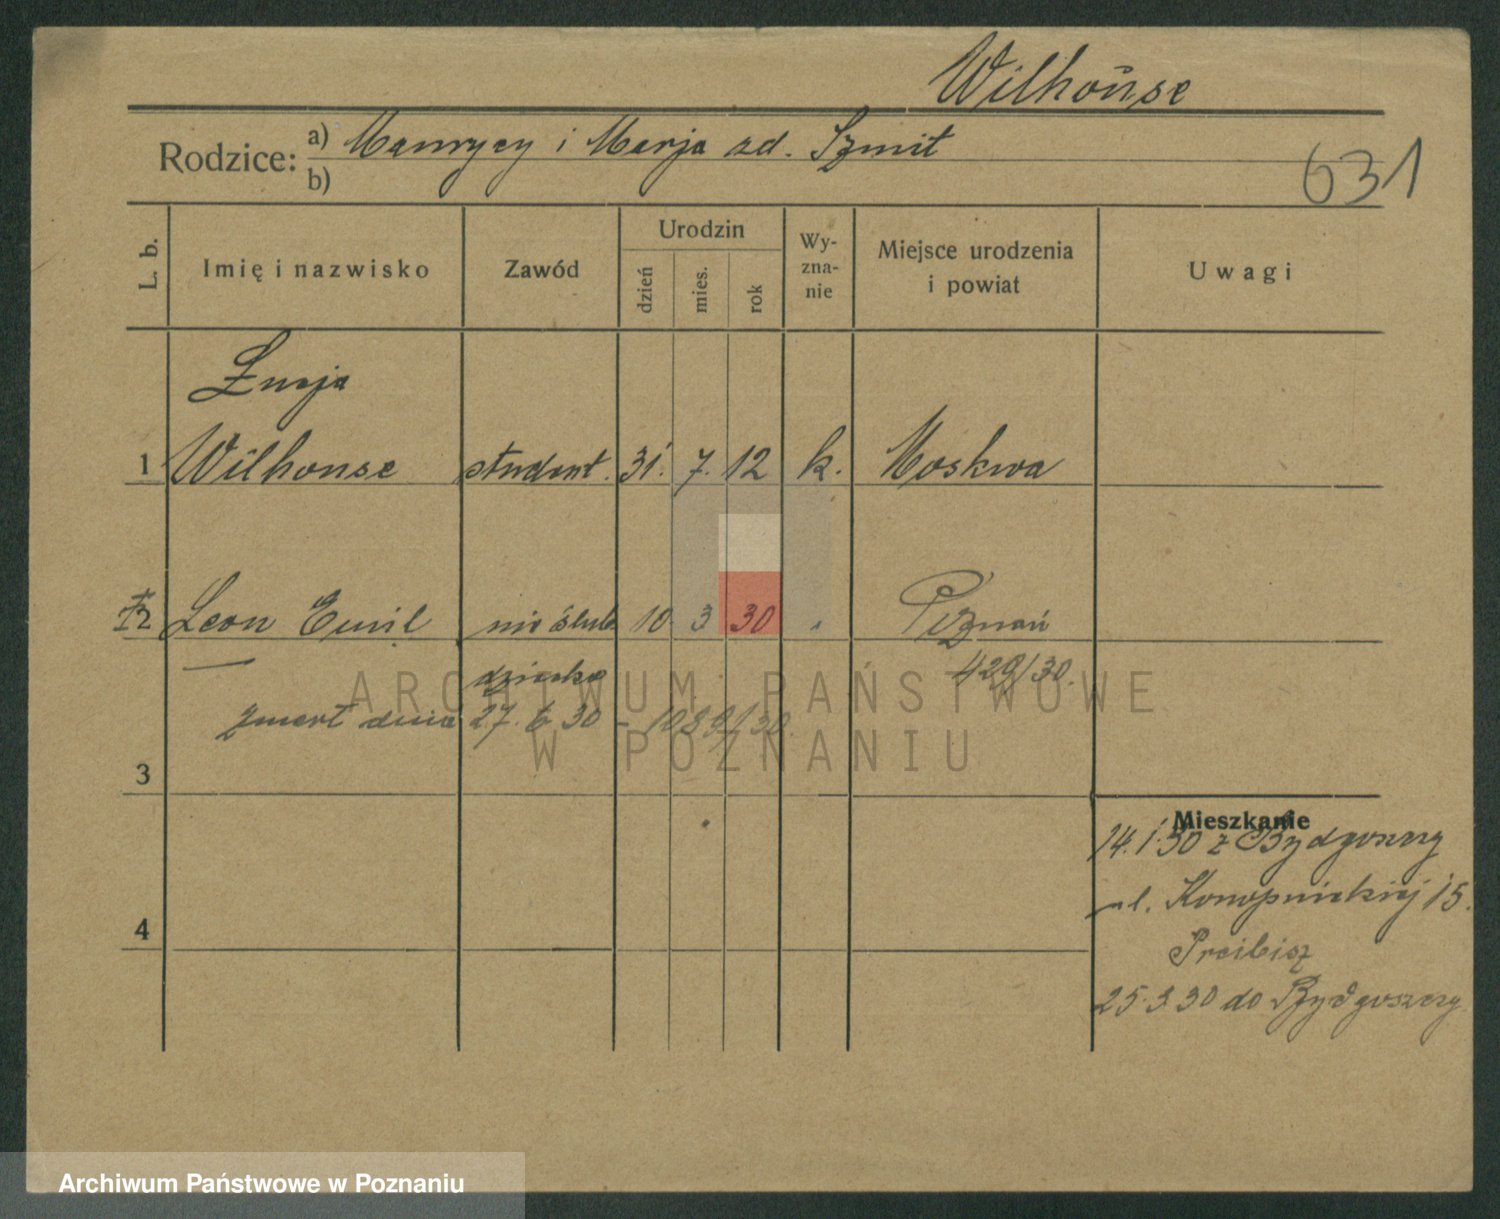 Wilhouse
Rodzice: a) Maurycy i Marja zd. Szmit
b)
631
L. b. Imię i nazwisko Zawód Urodzin dzień mies. rok Wyznanie Miejsce urodzenia i powiat Uwagi
Łucja
1 Wilhouse student. 31. 7. 12 k. Moskwa
2 Leon Emil nieślub 10 3 30 „ Poznań
dziecko 429/30.
zmarł dnia 27. 6 30 - 1089/30.
3
Mieszkanie
14.1.30 z Bydgoszczy
ul. Konopnickiej 15.
4
Preibisz
25.3.30 do Bydgoszczy
ARCHIWUM PAŃSTWOWE
W POZNANIU
Archiwum Państwowe w Poznaniu